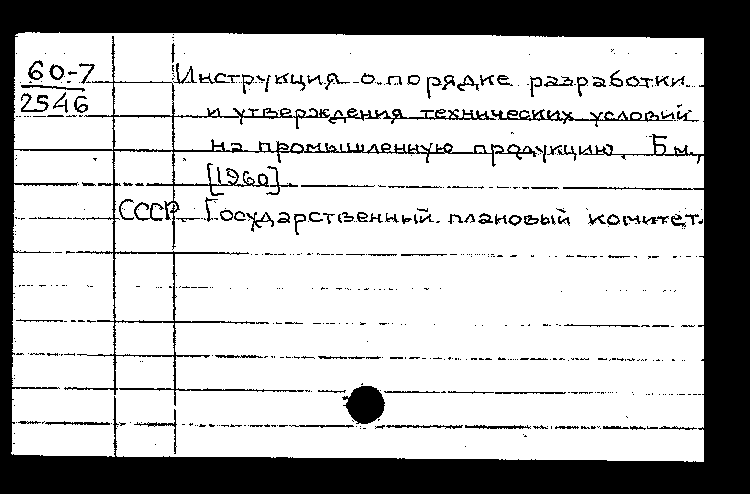 60-7 Инструкция о порядке разработки
2546
и утверждения технических условий
на промышленную продукцию. Б.м.,
[1960].
СССР. Государственный плановый комитет.